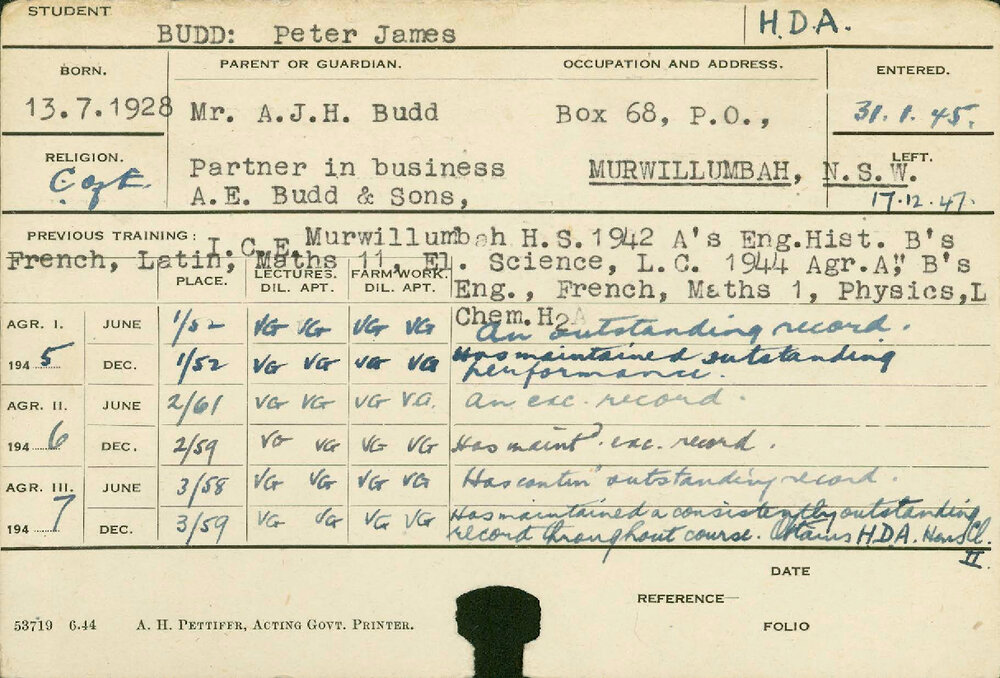 STUDENT
BUDD: Peter James
H.D.A.
BORN.
PARENT OR GUARDIAN.
OCCUPATION AND ADDRESS.
ENTERED.
13.7.1928
Mr. A.J.H. Budd
Box 68, P.O.,
31.1.45.
RELIGION.
Partner in business
MURWILLUMBAH, N.S.W.
LEFT.
A.E. Budd & Sons,
17.12.47.
PREVIOUS TRAINING:
I.C.E. Murwillumbah H.S. 1942 A's Eng.Hist. B's
French, Latin, Maths 11, El. Science, L.C. 1944 Agr.A," B's
Eng., French, Maths 1, Physics,L
Chem.H2A
PLACE.
LECTURES.
DIL. APT.
FARM WORK.
DIL. APT.
AGR. I. JUNE 1/52 VG VG VG VG An outstanding record.
1945 DEC. 1/52 VG VG VG VG Has maintained outstanding
performance.
AGR. II. JUNE 2/61 VG VG VG V.G. An exc. record.
1946 DEC. 2/59 VG VG VG VG Has maint^d exc. record.
AGR. III. JUNE 3/58 VG VG VG VG Has contin^d outstanding record.
1947 DEC. 3/59 VG VG VG VG Has maintained a consistently outstanding
record throughout course. Obtains H.D.A. Hons Cl.
II.
DATE
REFERENCE—
FOLIO
53719 6.44 A. H. PETTIFER, ACTING GOVT. PRINTER.